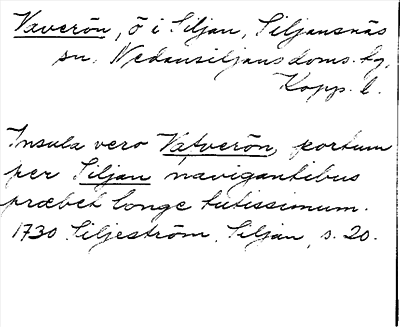 Vaverön, ö i Siljan, Siljansnäs
sn. Nedansiljans doms. hg,
Kopp. l.
Insula vero Vatverön, portum
per Siljan navigantibus
præbet longe tutissimum.
1730 Siljeström, Siljan, s. 20.